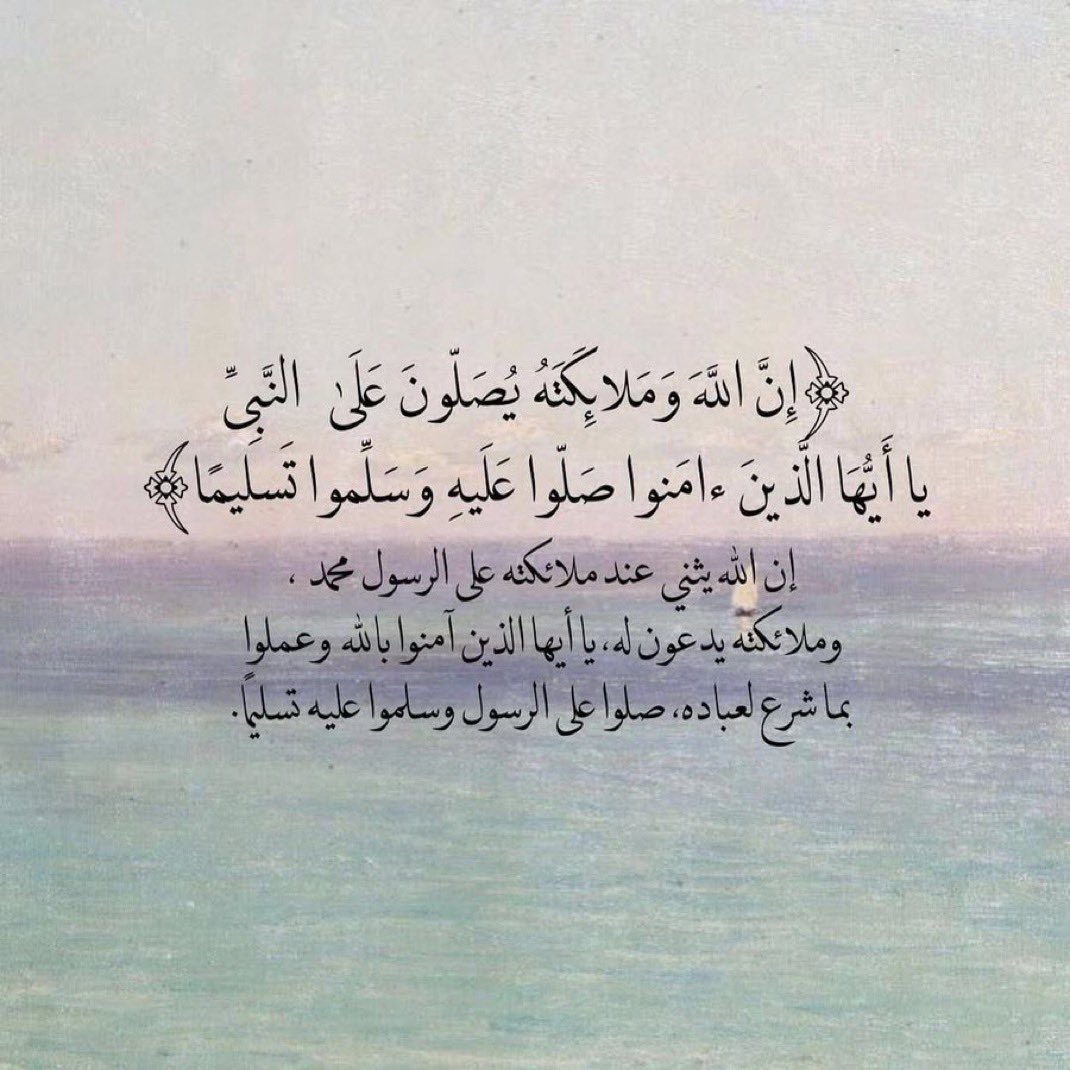 ﴿إِنَّ اللَّهَ وَمَلائِكَتَهُ يُصَلّونَ عَلَىٰ النَّبِيِّ
يا أَيُّهَا الَّذينَ ءامَنوا صَلّوا عَلَيهِ وَسَلِّموا تَسليمًا﴾
إن الله يثني عند ملائكته على الرسول محمد ،
وملائكته يدعون له، يا أيها الذين آمنوا بالله وعملوا
بما شرع لعباده، صلوا على الرسول وسلموا عليه تسليمًا.